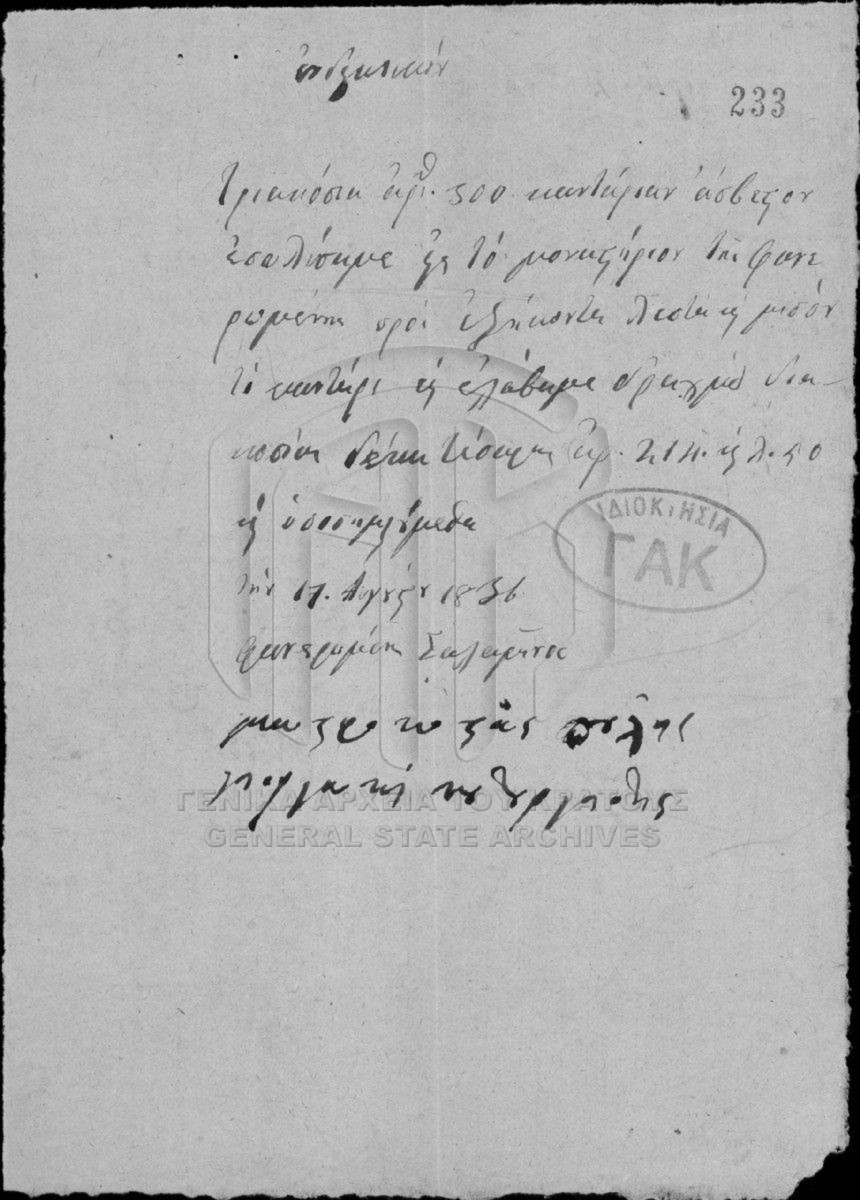 ἐνδικτικόν
233
Τριακόσια ἀρ. 300 καντάρια ἄσβεστον
ἐπολίσαμε εἰς τὸ μοναστήριον τῆς φανε
ρωμένης πρὸς ἑξήκοντα λεπτὰ καὶ μισόν
τὸ καντάρι καὶ ἐλάβαμε δραχμὰς δια-
κοσίας δέκα τέσαρες ἀρ. 214. καὶ λ. 50
καὶ ὑποσημειούμεθα
τὴν 17. Αὐγούστου 1836
φανερωμένη Σαλαμῖνος
ΙΔΙΟΚΤΗΣΙΑ
ΓΑΚ
ΓΕΝΙΚΑ ΑΡΧΕΙΑ ΤΟΥ ΚΡΑΤΟΥΣ
GENERAL STATE ARCHIVES